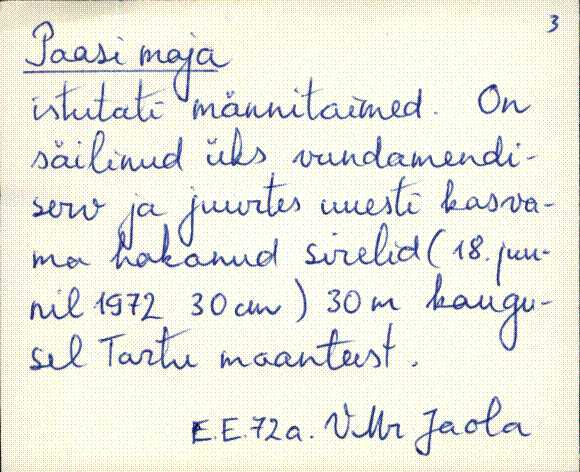 3
Paasi maja
istutati männitaimed. On
säilinud üks vundamendi-
serv ja juurtes uuesti kasva-
ma hakanud sirelid (18. juu-
nil 1972 30 cm) 30 m kaugu-
sel Tartu maanteest.
E.E.72a. V Mr Jaola